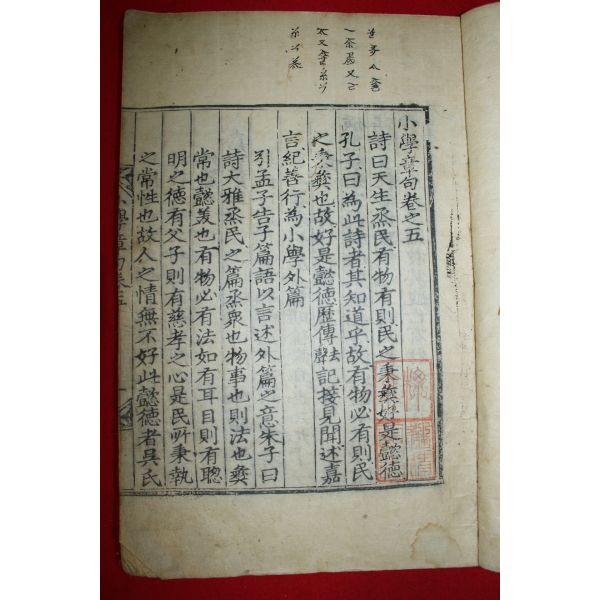 小學章句卷之五
詩曰天生烝民有物有則民之秉彝好是懿德
孔子曰為此詩者其知道乎故有物必有則民
之秉彝也故好是懿德歷傳去聲記接見聞述嘉
言紀善行為小學外篇
引孟子告子篇語以言述外篇之意朱子曰
詩大雅烝民之篇烝衆也物事也則法也彝
常也懿美也有物必有法如有耳目則有聰
明之德有父子則有慈孝之心是民所秉執
之常性也故人之情無不好此懿德者吳氏
小學章句卷五